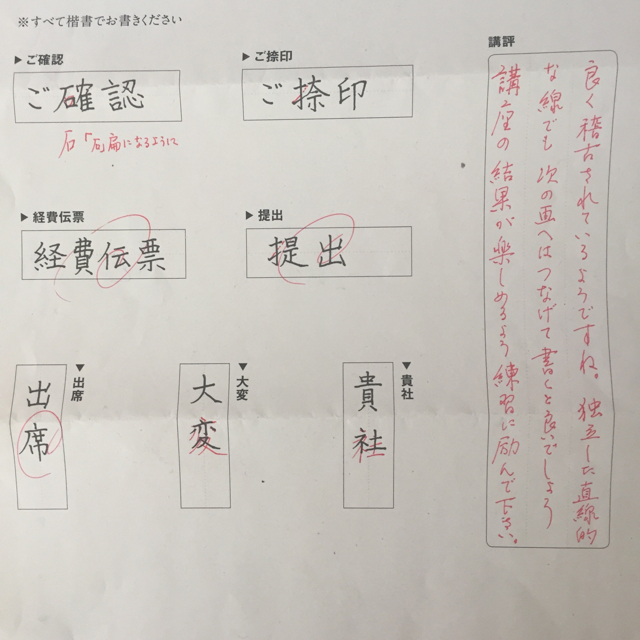 ※すべて楷書でお書きください
▶ご確認
ご確認
石「石」扁になるように
▶ご捺印
ご捺印
▶経費伝票
経費伝票
▶提出
提出
▼出席
出席
▼大変
大変
▼貴社
貴社
講評
良く稽古されているようですね。独立した直線的
な線でも次の画へはつなげて書くと良いでしょう
講座の結果が楽しめるよう練習に励んで下さい。